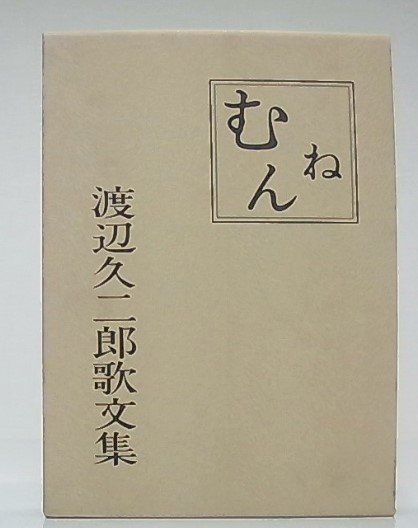 むねん
渡辺久二郎歌文集